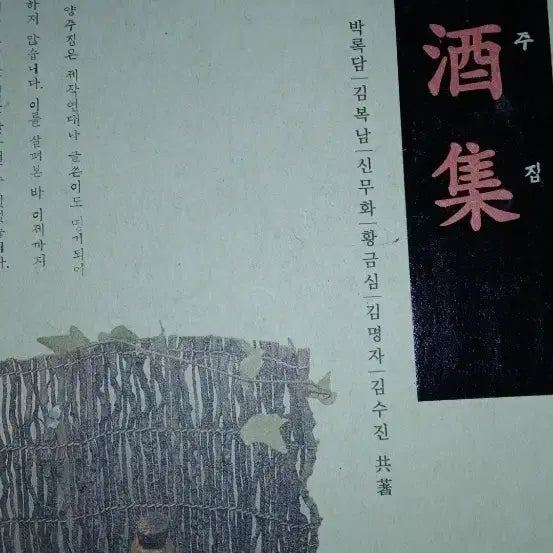 酒集
주집
박록담|김복남|신무화|황금심|김명자|김수진 共著
양주집은 제작연대나 글쓴이도 명기되어
하지 않습니다. 이를 살펴본 바 이제까지